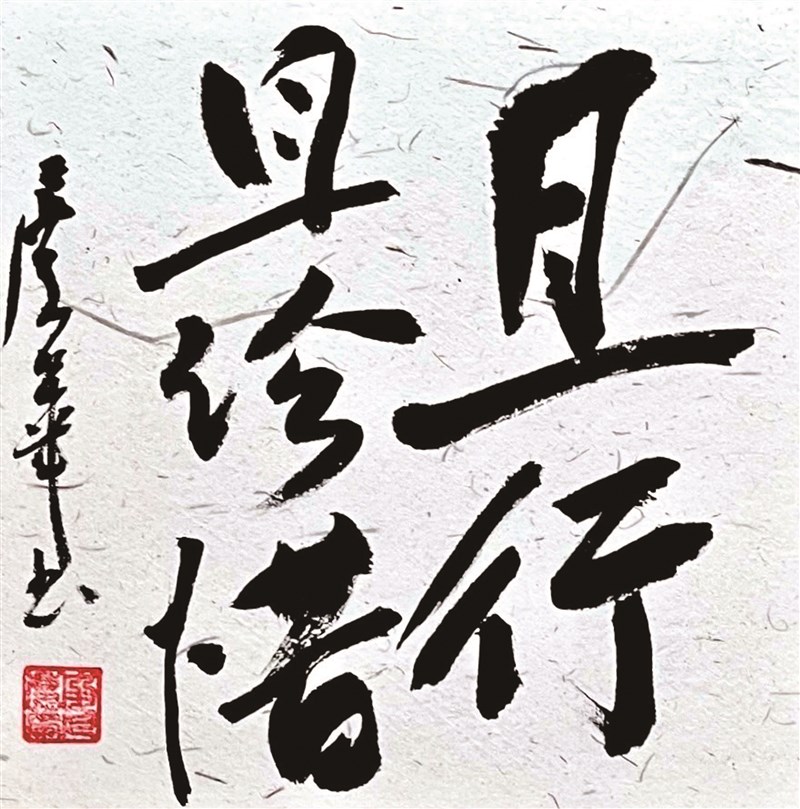 且行
且珍惜